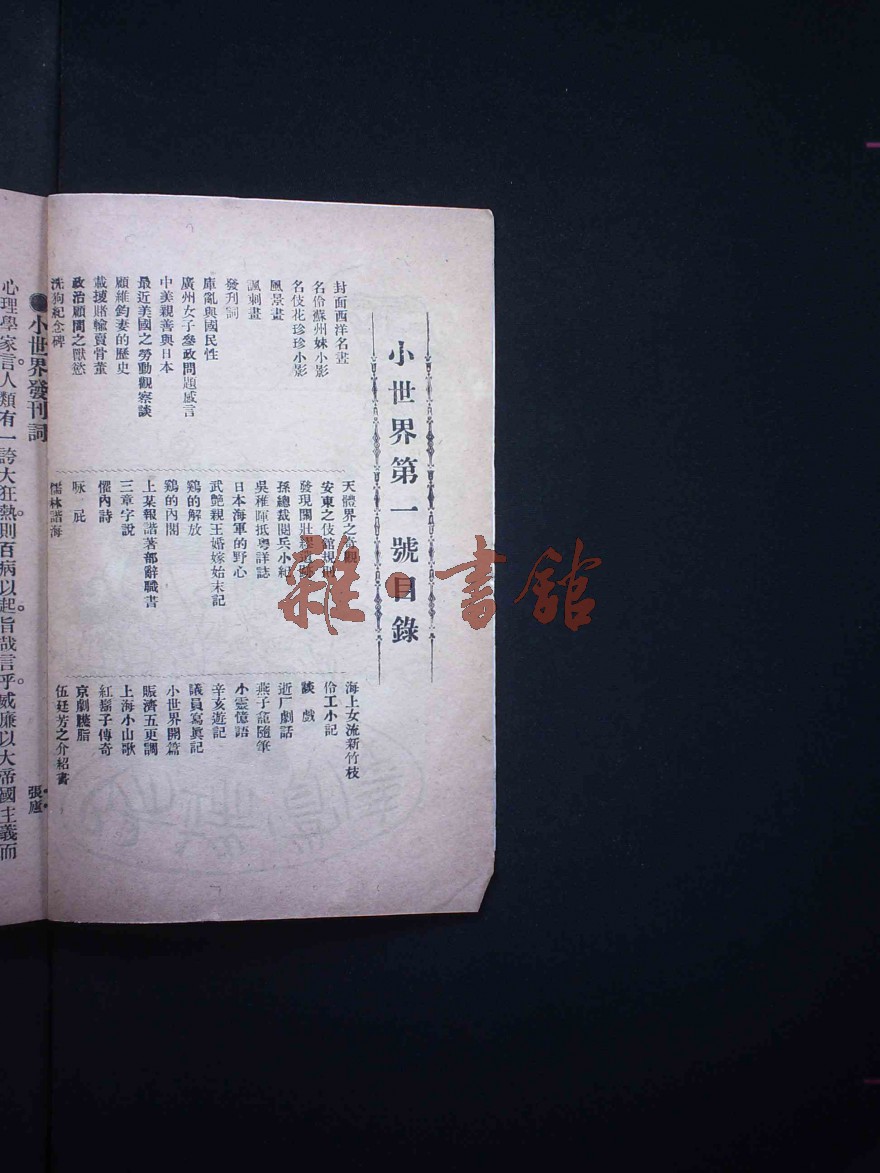 小世界第一號目錄
封面西洋名畫
名伶蘇州妹小影
名伎花珍珍小影
風景畫
諷刺畫
發刊詞
庫亂與國民性
廣州女子參政問題感言
中美親善與日本
最近美國之勞動觀察談
顧維鈞妻的歷史
截援賭輸賣骨董
政治顧問之獸慾
洗狗紀念碑
天體界之奇觀
安東之伎館規則
發現關壯繆遺跡
孫總裁閱兵小紀
吳稚暉抵粵詳誌
日本海軍的野心
武艶親王婚嫁始末記
鷄的解放
鷄的內閣
上某報諧著部辭職書
三章字說
懼內詩
咏屁
儒林諧海
海上女流新竹枝
伶工小記
談戲
近厂劇話
燕子龕隨筆
小靈憶語
辛亥遊記
議員寫眞記
小世界開篇
賑濟五更調
上海小山歌
紅鬍子傳奇
京劇臙脂
伍廷芳之介紹書
●小世界發刊詞
張廬
心理學家言。人類有一誇大狂熱。則百病以起。旨哉言乎。威廉以大帝國主義而
雜·書館